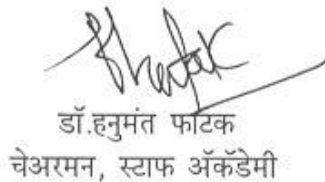 डॉ.हनुमंत फाटक
चेअरमन, स्टाफ ॲकॅडेमी